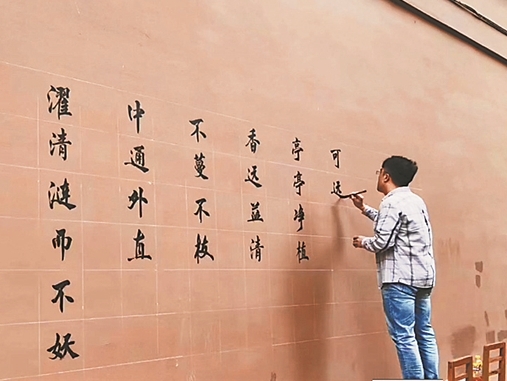 濯清涟而不妖
中通外直
不蔓不枝
香远益清
亭亭净植
可远